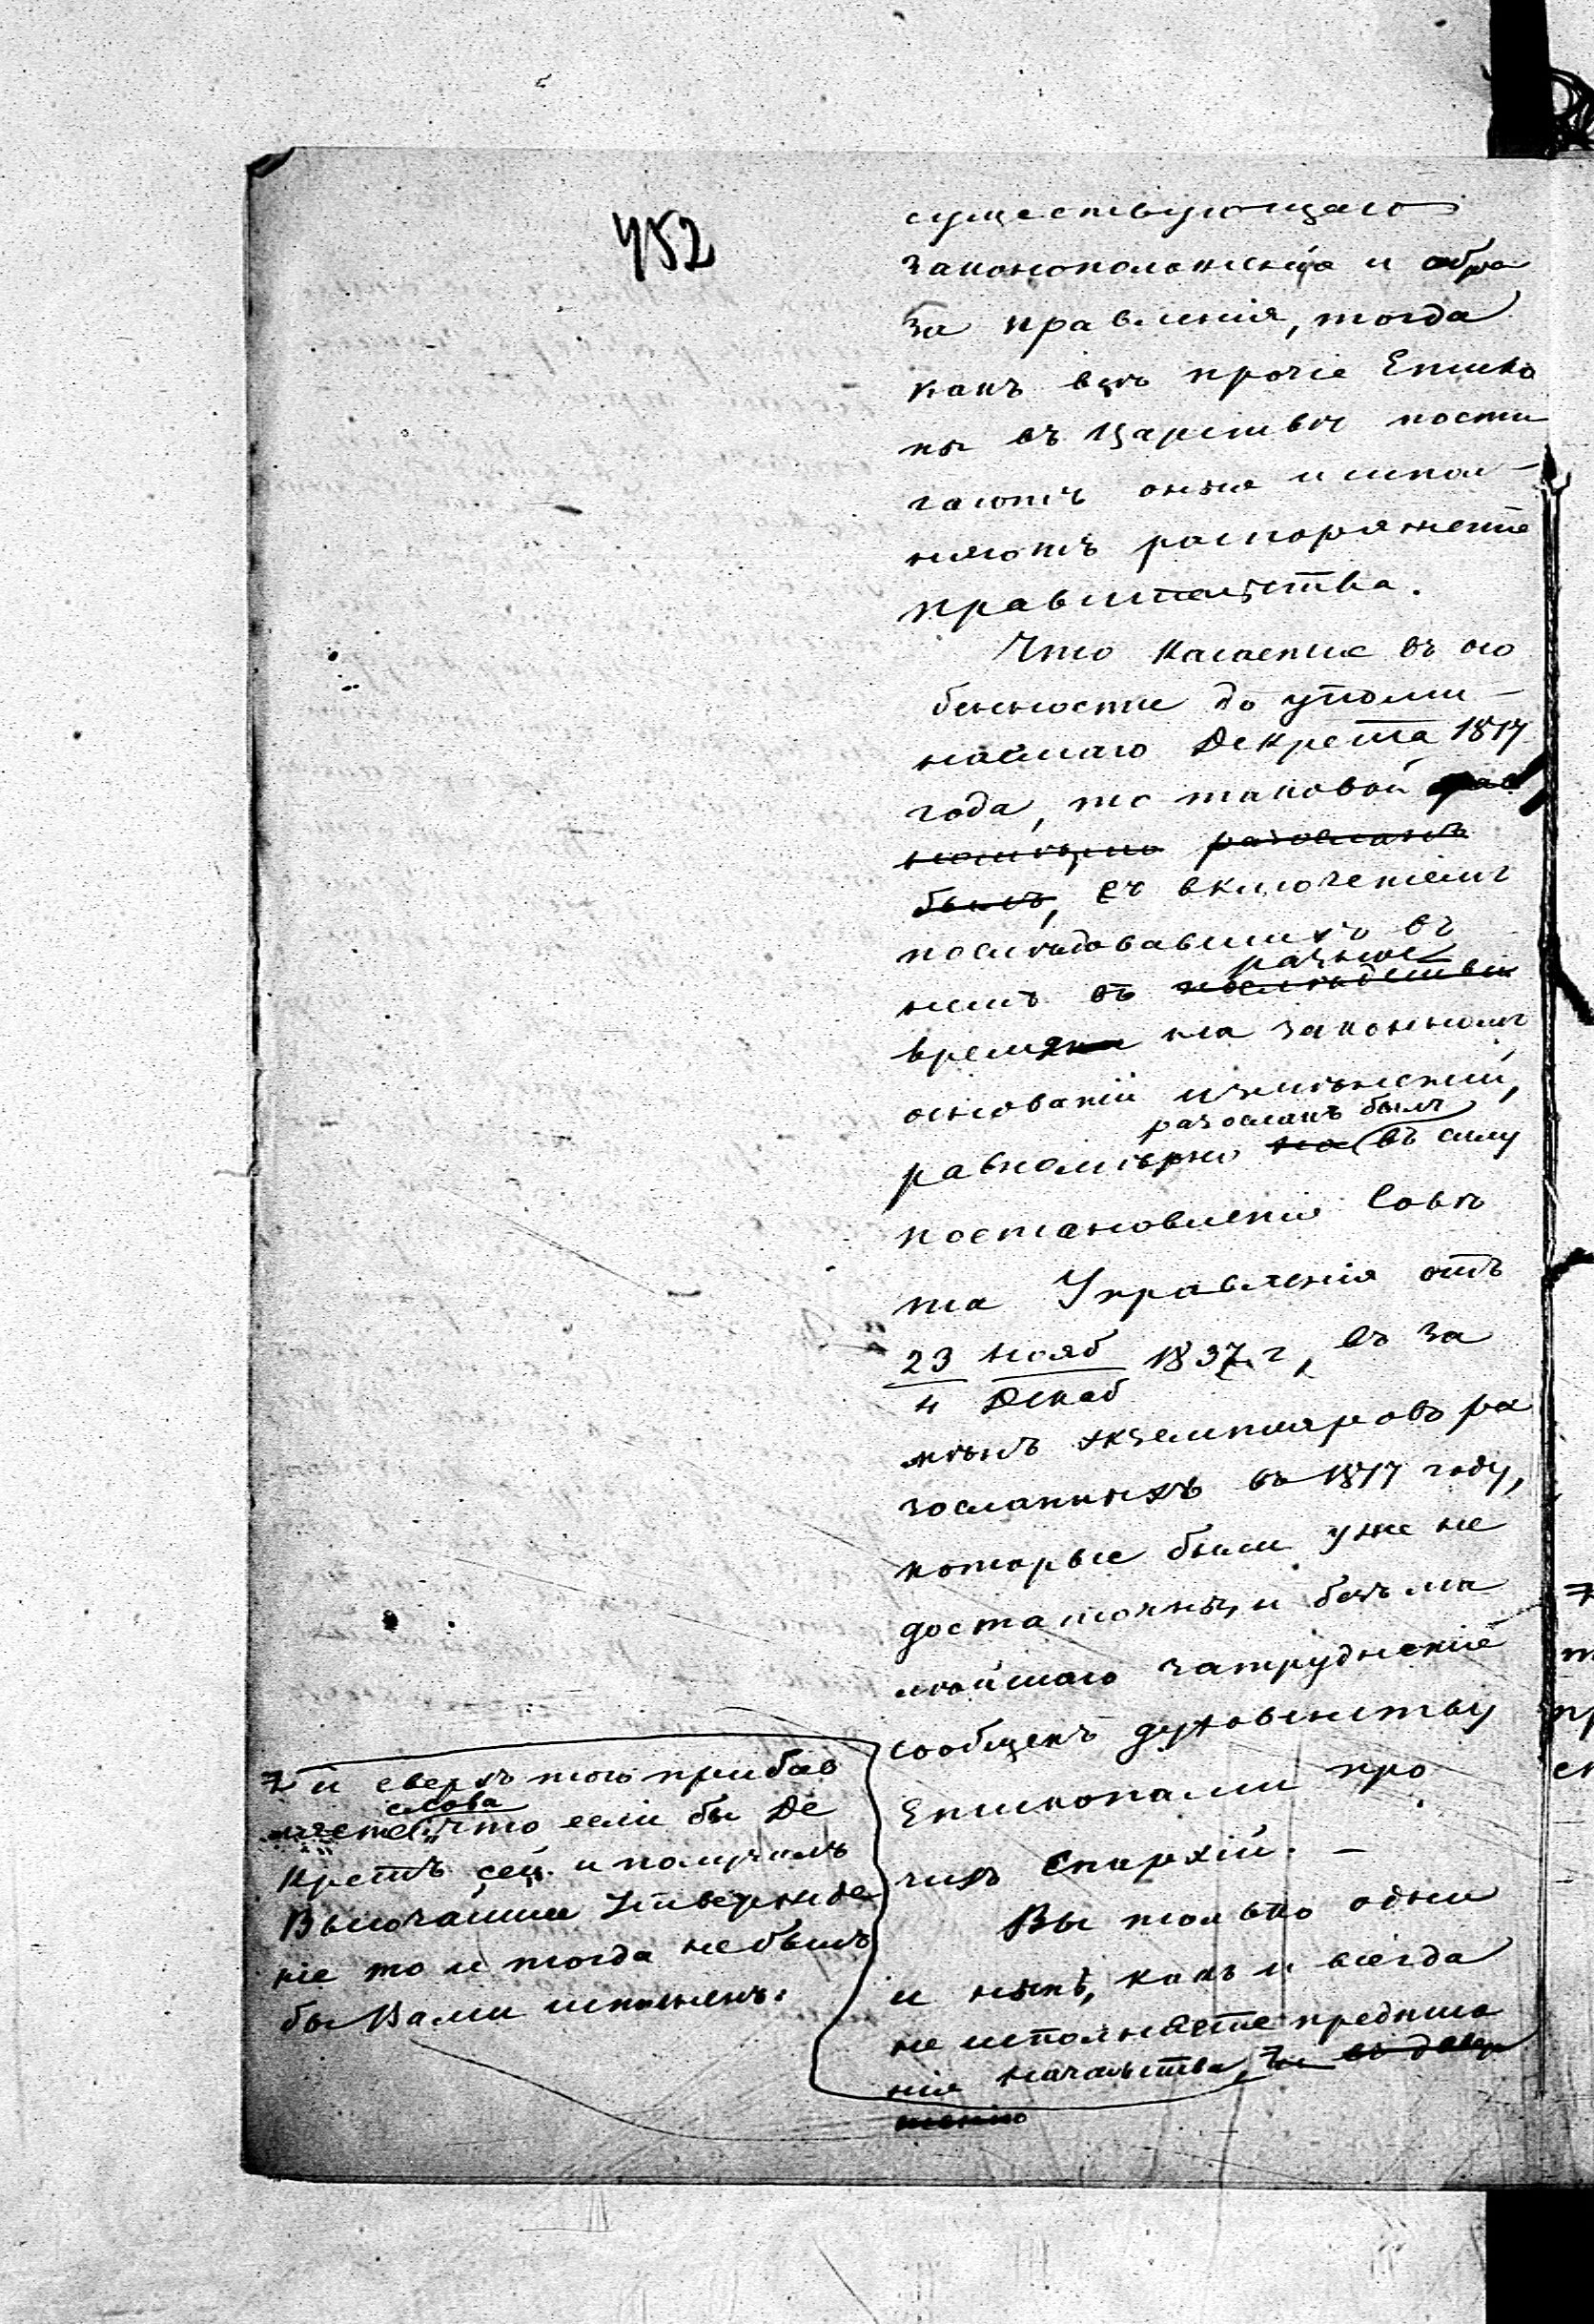 452
существующаго
законоположенія и обра
за правленія, тогда
какъ всѣ прочіе Еписко
пы въ Царствѣ пости
гаютъ оныя и испол-
няютъ распоряженіе
правительства.
Что касается въ осо
бенности до упоми-
наемаго Декрета 1817
года, то таковой рав
номѣрно разосланъ
былъ, съ включеніемъ
послѣдовавшихъ въ
разное
немъ въ послѣдствіи
время на законномъ
основаніи измѣненій,
разосланъ былъ
равномѣрно въ силу
постановленія Совѣ
та Управленія отъ
23 нояб 1837 г, въ за
4 Декаб
мѣнъ экземпляровъ ра
зосланныхъ въ 1817 году,
которые были уже не
достаточны, и безъ ма
лѣйшаго затрудненіе
сообщенъ духовенству
Епископами про
чихъ Епархій. -
Вы только одни
и нынѣ, какъ и всегда
не исполняете предписа
нія начальства, и въ довер
шенію
и сверхъ того прибав
слова
ляете „что если бы Де
кретъ сей и получилъ
Высочайшее Утвержде
ніе то и тогда не былъ
бы Вами исполненъ.